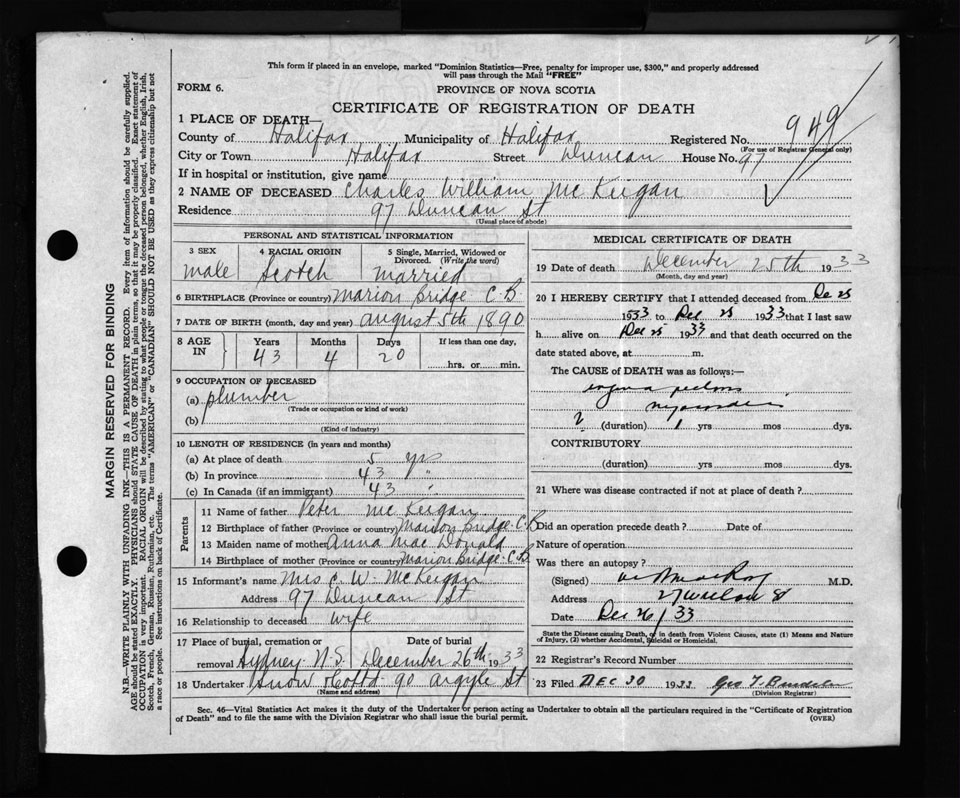 This form if placed in an envelope, marked "Dominion Statistics—Free, penalty for improper use, $300," and properly addressed
will pass through the Mail "FREE"
FORM 6.
PROVINCE OF NOVA SCOTIA
CERTIFICATE OF REGISTRATION OF DEATH
1 PLACE OF DEATH—
County of Halifax Municipality of Halifax Registered No. 949
(For use of Registrar General only)
City or Town Halifax Street Duncan House No. 97
If in hospital or institution, give name
2 NAME OF DECEASED Charles William McKeigan
Residence 97 Duncan St
(Usual place of abode)
PERSONAL AND STATISTICAL INFORMATION
3 SEX 4 RACIAL ORIGIN 5 Single, Married, Widowed or
Divorced. (Write the word)
male Scotch married
6 BIRTHPLACE (Province or country) Marion Bridge C.B.
7 DATE OF BIRTH (month, day and year) august 5th 1890
8 AGE IN Years Months Days If less than one day,
43 4 20 hrs. or min.
9 OCCUPATION OF DECEASED
(a) plumber
(Trade or occupation or kind of work)
(b)
(Kind of industry)
10 LENGTH OF RESIDENCE (in years and months)
(a) At place of death 5 yrs
(b) In province 43 "
(c) In Canada (if an immigrant) 43 "
Parents
11 Name of father Peter McKeigan
12 Birthplace of father (Province or country) Marion Bridge C.B
13 Maiden name of mother Anna MacDonald
14 Birthplace of mother (Province or country) Marion Bridge C.B.
15 Informant's name Mrs C. W. McKeigan
Address 97 Duncan St
16 Relationship to deceased wife
17 Place of burial, cremation or Date of burial
removal Sydney N.S. December 26th 1933
18 Undertaker Snow & Co Ltd 90 Argyle St
(Name and address)
MEDICAL CERTIFICATE OF DEATH
19 Date of death December 25th 1933
(Month, day and year)
20 I HEREBY CERTIFY that I attended deceased from De 25
1933 to Dec 25 1933 that I last saw
h alive on Dec 25 1933 and that death occurred on the
date stated above, at m.
The CAUSE of DEATH was as follows:—
angina
2 (duration) 1 yrs mos dys.
CONTRIBUTORY
(duration) yrs mos dys.
21 Where was disease contracted if not at place of death?
Did an operation precede death? Date of
Nature of operation
Was there an autopsy?
(Signed) M.D.
Address
Date Dec 26/33
State the Disease causing Death, or in death from Violent Causes, state (1) Means and Nature
of Injury, (2) whether Accidental, Suicidal or Homicidal.
22 Registrar's Record Number
23 Filed DEC 30 1933 Geo T.
(Division Registrar)
Sec. 46—Vital Statistics Act makes it the duty of the Undertaker or person acting as Undertaker to obtain all the particulars required in the "Certificate of Registration
of Death" and to file the same with the Division Registrar who shall issue the burial permit.
(OVER)
MARGIN RESERVED FOR BINDING
N.B.—WRITE PLAINLY WITH UNFADING INK—THIS IS A PERMANENT RECORD. Every item of information should be carefully supplied.
AGE should be stated EXACTLY. PHYSICIANS should STATE CAUSE OF DEATH in plain terms, so that it may be properly classified. Exact statement of
OCCUPATION is very important. RACIAL ORIGIN will be described by stating to what people or tongue the deceased person belonged, whether English, Irish,
Scotch, French, German, Russian, Ruthenian, etc. The terms "AMERICAN" or "CANADIAN" SHOULD NOT BE USED as they express citizenship but not
a race or people. See instructions on back of Certificate.